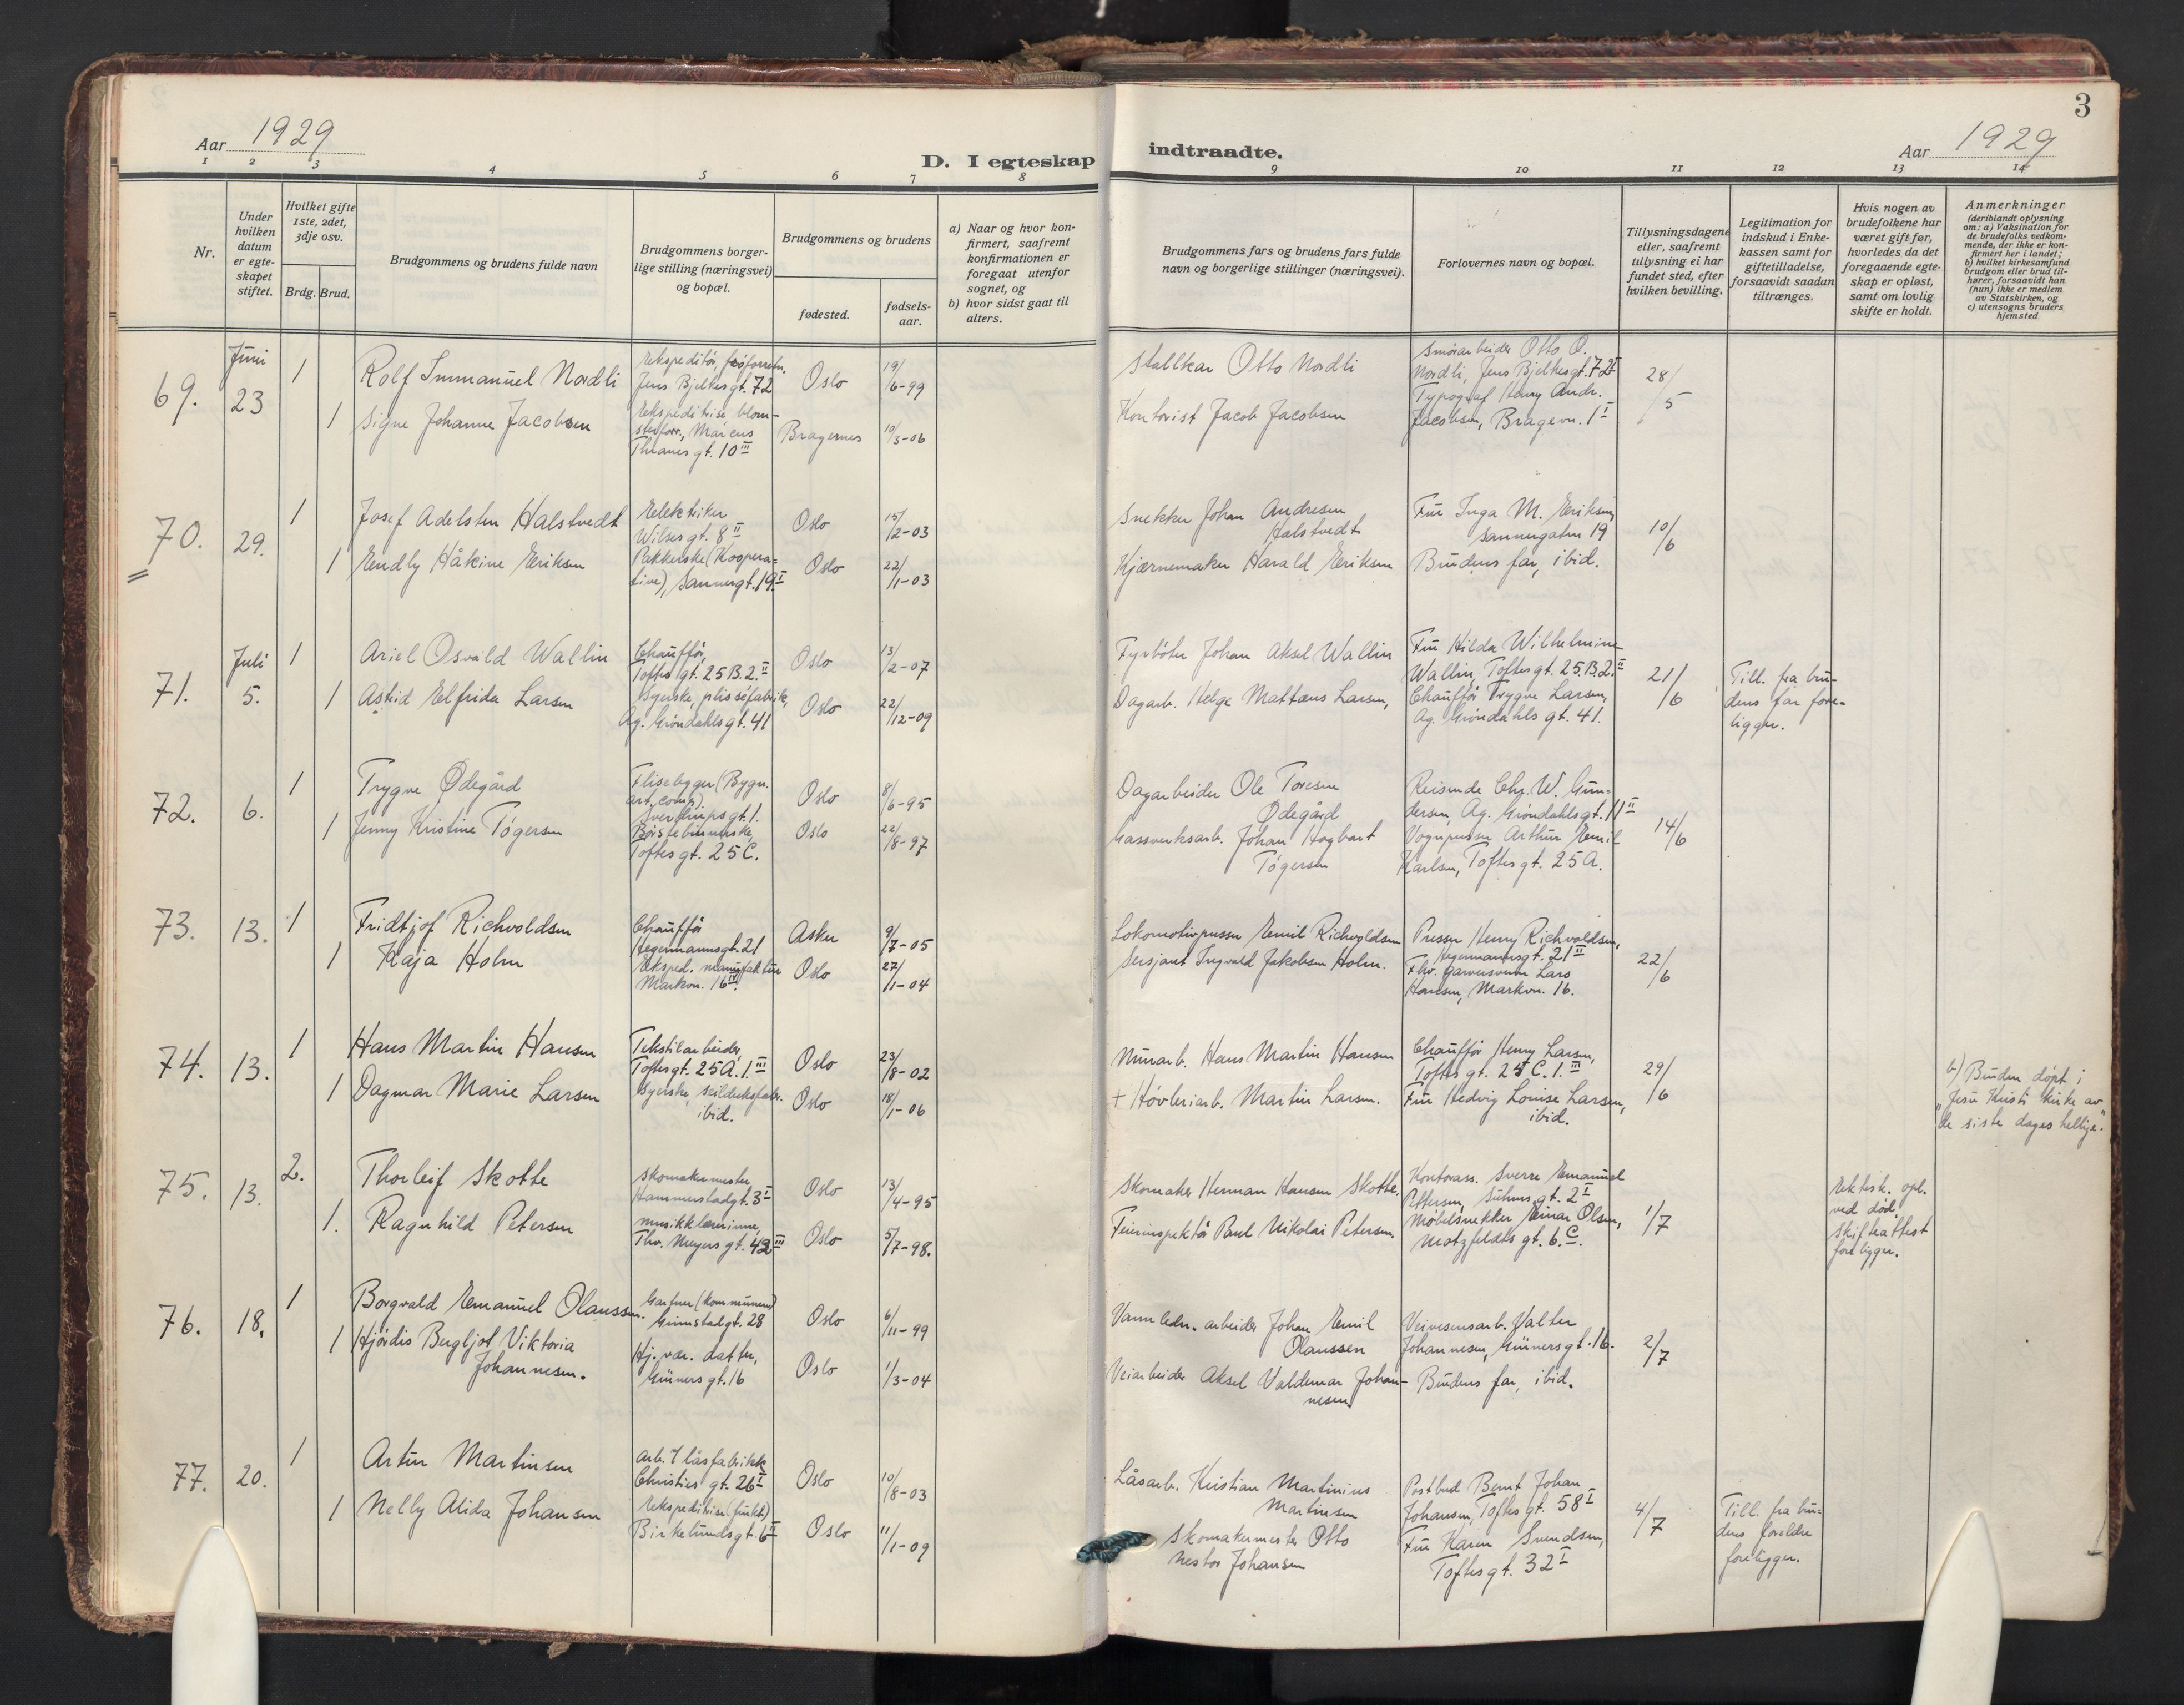 3
Aar 1929
D. I egteskap indtraadte.
Aar 1929
1 2 3 4 5 6 7 8 9 10 11 12 13 14
Nr.
Under hvilken datum er egteskapet stiftet.
Hvilket gifte 1ste, 2det, 3dje osv.
Brdg. Brud.
Brudgommens og brudens fulde navn
Brudgommens borgerlige stilling (næringsvei) og bopæl.
Brudgommens og brudens
fødested.
fødselsaar.
a) Naar og hvor konfirmert, saafremt konfirmationen er foregaat utenfor sognet, og
b) hvor sidst gaat til alters.
Brudgommens fars og brudens fars fulde navn og borgerlige stillinger (næringsvei).
Forlovernes navn og bopæl.
Tillysningsdagene eller, saafremt tillysning ei har fundet sted, efter hvilken bevilling.
Legitimation for indskud i Enkekassen samt for giftetilladelse, forsaavidt saadan tiltrænges.
Hvis nogen av brudefolkene har været gift før, hvorledes da det foregaaende egteskap er opløst, samt om lovlig skifte er holdt.
Anmerkninger
(deriblandt oplysning om: a) Vaksination for de brudefolks vedkommende, der ikke er konfirmert her i landet; b) hvilket kirkesamfund brudgom eller brud tilhører, forsaavidt han (hun) ikke er medlem av Statskirken, og c) utensogns bruders hjemsted
69. Juni 23
1 Rolf Immanuel Nordli
Ekspeditør, frøforretn.
Jens Bjelkesgt. 72
Oslo 19/6-99
Stallkar Otto Nordli
Smørarbeider Otto O.
Nordli, Jens Bjelkesgt. 72 I
28/5
1 Signe Johanne Jacobsen
Ekspeditrise blom-
sterforr., Marcus
Thranes gt. 10 III
Bragernes 10/3-06
Kontorist Jacob Jacobsen
Typograf Henry Andr.
Jacobsen, Bragevn. 1 I
70. 29.
1 Josef Adelsten Halstvedt
Elektriker
Wilsesgt. 8 II
Oslo 15/2-03
Snekker Johan Andresen
Halstvedt
Fru Inga M. Eriksen,
Sannergaten 19
10/6
1 Endly Håkine Eriksen
Pakkerske (Koopera-
tive), Sannergt. 19 I
Oslo 22/1-03
Kjærnemaker Harald Eriksen
Brudens far, ibid.
71. Juli 5.
1 Ariel Osvald Wallin
Chauffør,
Toftesgt. 25 B. 2. II
Oslo 13/2-07
Fyrbøter Johan Aksel Wallin
Fru Hilda Wilhelmine
Wallin, Toftesgt. 25 B. 2. II
21/6
Till. fra bru-
dens far fore-
ligger.
1 Astrid Elfrida Larsen
Syerske, plisséfabrik,
Ag. Grøndahlsgt. 41
Oslo 22/12-09
Dagarb. Helge Mattæus Larsen,
Chauffør Trygve Larsen,
Ag. Grøndahls gt. 41.
72. 6.
1 Trygve Ødegård
Flisebygger (Bygn.
art. comp.).
Sverdrupsgt. 1.
Oslo 8/6-95
Dagarbeider Ole Toresen
Ødegård
Reisende Chr. W. Gun-
dersen, Ag. Grøndahlsgt. 11 II
14/6
1 Jenny Kristine Tøgersen
Børstebinnerske,
Toftesgt. 25 C.
Oslo 22/8-97
Gassverksarb. Johan Hagbart
Tøgersen
Vognpusser Arthur Emil
Karlsen, Toftesgt. 25 A.
73. 13.
1 Fridtjof Richvoldsen
Chauffør
Hegermannsgt. 21
Asker 9/7-05
Lokomotivpusser Emil Richvoldsen
Presser Henry Richvoldsen,
Hegermannsgt. 21 II
22/6
1 Kaja Holm
Eksped. manufaktur
Markvn. 16 IV.
Oslo 27/1-04
Sersjant Ingvald Jakobsen Holm.
Fhv. garversvenn Lars
Hansen, Markvn. 16.
74. 13.
1 Hans Martin Hansen
Tekstilarbeider,
Toftesgt. 25 A. 1. III
Oslo 23/8-02
Murarb. Hans Martin Hansen
Chauffør Henry Larsen,
Toftesgt. 25 C. 1. III
29/6
1 Dagmar Marie Larsen
Syerske, seildukfabr.
ibid.
Oslo 18/1-06
+ Høvleriarb. Martin Larsen.
Fru Hedvig Louise Larsen,
ibid.
b) Bruden døpt i
"Jesu Kristi Kirke av
de siste dages hellige".
75. 13.
2. Thorleif Skotte
Skomakermester
Hammerstadgt. 3 I
Oslo 13/4-95
Skomaker Herman Hansen Skotte.
Kontorass. Sverre Emanuel
Pettersen, Suhms gt. 2 I
1/7
Ektesk. opl.
ved død.
Skifteattest
foreligger.
1. Ragnhild Petersen
musikklærerinne,
Thv. Meyers gt. 42 III
Oslo 5/7-98.
Feierinspektør Paul Nikolai Petersen.
Møbelsnekker Einar Olsen,
Motzfeldts gt. 6. C.
76. 18.
1 Borgvald Emanuel Olaussen.
Gartner (kommunen)
Grimstadgt. 28
Oslo 6/11-99
Vannledn. arbeider Johan Emil
Olaussen
Veivesensarb. Valter
Johannesen, Grünersgt. 16.
2/7
1 Hjørdis Bergljot Viktoria
Johannesen.
Hj. vær. datter,
Grünersgt. 16
Oslo 1/3-04
Veiarbeider Aksel Valdemar Johan-
nesen.
Brudens far, ibid.
77. 20.
1 Artur Martinsen
Arb. i låsfabrikk
Christies gt. 26 I
Oslo 10/8-03
Låsarb. Kristian Martinius
Martinsen
Postbud Bernt Johan
Johansen, Toftes gt. 58 I
4/7
Till. fra bru-
dens foreldre
foreligger.
1 Nelly Alida Johansen
Ekspeditrise (frukt)
Birkelundsgt. 6 III
Oslo 11/1-09
Skomakermester Otto
Nestor Johansen
Fru Karen Svendsen,
Toftesgt. 32 I